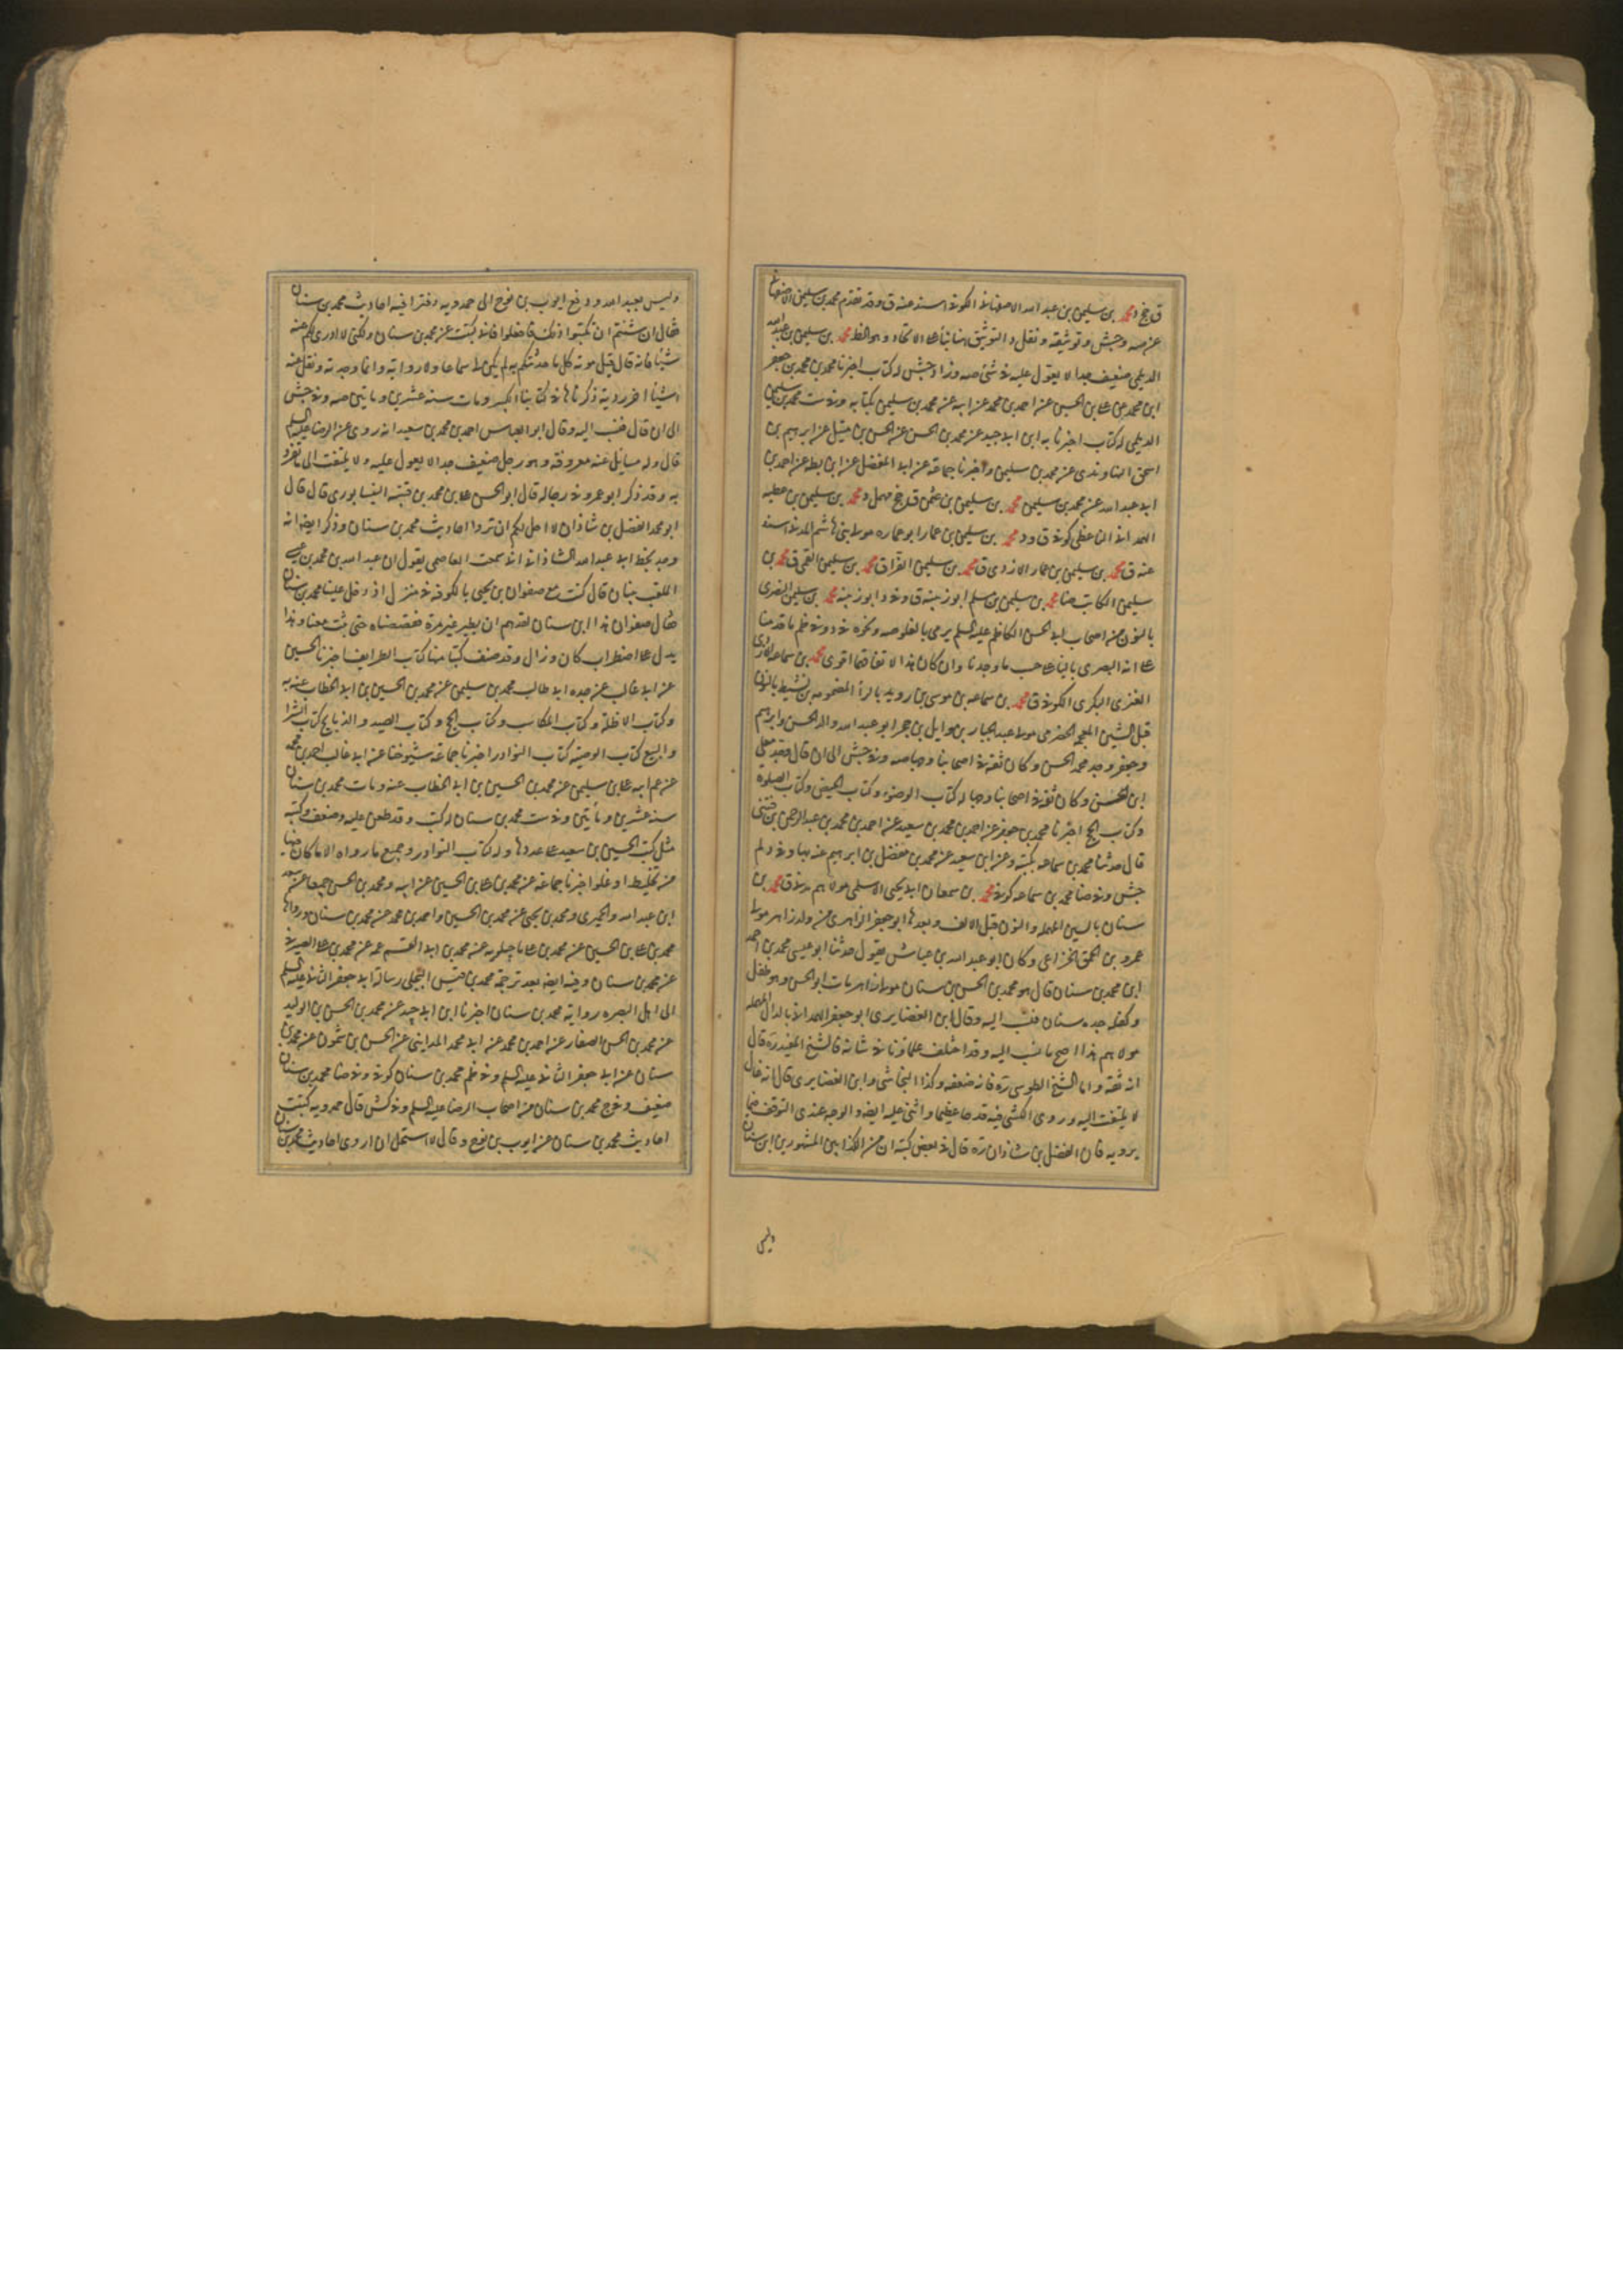 ق جخ د محمد بن سليمن بن عبد الله الاصفهانى الكوفى اسند عنه ق وقد تقدم محمد بن سليمن الاصفهانى
عن صه و جش و توثيقه و نقل د التوثيق هنا بناء على الاتحاد وهو الظ محمد بن سليمن بن عبد الله
الديلمى ضعيف جدا لا يعول عليه فى شئ صه وزاد جش له كتاب اخبرنا محمد بن محمد بن جعفر
ابن محمد عن على بن الحسين عن احمد بن محمد عن ابيه عن محمد بن سليمن بكتابه وفى ست محمد بن سليمن
الديلمى له كتاب اخبرنا به ابن ابى جيد عن محمد بن الحسن عن الحسن بن متيل عن ابرهيم بن
اسحق النهاوندى عن محمد بن سليمن واخبرنا جماعة عن ابى المفضل عن ابن بطه عن احمد بن
ابى عبد الله عن محمد بن سليمن محمد بن سليمن بن عثمن ق جخ مهمل د محمد بن سليمن بن عطيه
الهمدانى الناعطى كوفى ق ود محمد بن سليمن بن عمار ابو عماره مولى بنى هاشم المدنى اسند
عنه ق محمد بن سليمن بن عمار الازدى ق محمد بن سليمن الفرا ق محمد بن سليمن القمى ق محمد بن
سليمن الكاتب ضا محمد بن سليمن بن سلم ابو زينه ق وفى د ابو زينه محمد بن سليمن النصرى
بالنون من اصحاب ابى الحسن الكاظم عليه السلم يرمى بالغلو صه ونحوه فى د وفى ظم ما قدمنا
على انه البصرى بالباء على حسب ما وجدنا وان كان هذا الاتفاق اقوى محمد بن سماعه الازدى
العنزى البكرى الكوفى ق محمد بن سماعه بن موسى بن رويد بالراء المضمومه بن نشيط بالنون
قبل الشين المعجمه الحضرمى مولى عبد الجبار بن وايل بن حجر ابو عبد الله والد الحسن وابرهيم
وجعفر وجد محمد الحسن وكان ثقة فى اصحابنا وجها صه وفى جش الى ان قال وجد معلى
ابن الحسن وكان ثقة فى اصحابنا وجها له كتاب الوضوء وكتاب الحيض وكتاب الصلوة
وكتاب الحج اخبرنا محمد بن جعفر عن احمد بن محمد بن سعيد عن احمد بن محمد بن عبد الرحمن بن فنتى
قال حدثنا محمد بن سماعه بكتبه وعن ابن سعيد عن محمد بن مفضل بن ابرهيم عنه بها وفى د لم
جش وفى ضا محمد بن سماعه كوفى محمد بن سمعان ابى يحيى الاسلمى مولاهم مدنى ق محمد بن
سنان بالسين المهمله والنون قبل الالف وبعدها ابو جعفر الزاهرى من ولد زاهر مولى
عمرو بن الحمق الخزاعى وكان ابو عبد الله بن عياش يقول حدثنا ابو عيسى محمد بن احمد
ابن محمد بن سنان قال هو محمد بن الحسن بن سنان مولى زاهر مات ابوه الحسن وهو طفل
وكفله جده سنان فنسب اليه وقال ابن الغضايرى ابو جعفر الهمدانى بالدال المهمله
مولاهم هذا اصح ما نسب اليه وقد اختلف علماؤنا فى شانه فالشيخ المفيد ره قال
انه ثقة واما الشيخ الطوسى ره فانه ضعفه وكذا النجاشى وابن الغضايرى قال انه غال
لا يلتفت اليه وروى الكشى فيه قدحا عظيما واثنى عليه ايضه والوجه عندى التوقف فيما
يرويه فان الفضل بن شاذان ره قال فى بعض كتبه ان من الكذابين المشهورين ابن سنان
وليس
وليس بعبد الله ودفع ايوب بن نوح الى حمدويه دفترا فيه احاديث محمد بن سنان
فقال ان شئتم ان تكتبوا ذلك فافعلوا فانى كتبت عن محمد بن سنان ولكنى لا اروى لكم عنه
شيئا فانه قال قبل موته كل ما حدثتكم به لم يكن لى سماعا ولا رواية وانما وجدته ونقل عنه
اشياء اخر ردية ذكرناها فى كتابنا الكبير ومات سنة عشرين وماتين صه وفى جش
الى ان قال فنسب اليه وقال ابو العباس احمد بن محمد بن سعيد انه روى عن الرضا عليه السلم
قال وله مسايل عنه معروفة وهو رجل ضعيف جدا لا يعول عليه ولا يلتفت الى ما تفرد
به وقد ذكر ابو عمرو فى رجاله قال ابو الحسن على بن محمد بن قتيبه النيسابورى قال قال
ابو محمد الفضل بن شاذان لا احل لكم ان ترووا احاديث محمد بن سنان وذكر ايضه انه
وجد بخط ابى عبد الله الشاذانى انى سمعت العاصمى يقول ان عبد الله بن محمد بن عيسى
الملقب ببنان قال كنت مع صفوان بن يحيى بالكوفة فى منزل اذ دخل علينا محمد بن سنان
فقال صفوان هذا ابن سنان لقد هم ان يطير غير مرة فقصصناه حتى ثبت معنا وهذا
يدل على اضطراب كان وزال وقد صنف كتبا منها كتاب الطرايف اخبرنا الحسين
عن ابى غالب عن جده ابى طالب محمد بن سليمن عن محمد بن الحسين بن ابى الخطاب عنه به
وكتاب الاظلة وكتاب المكاسب وكتاب الحج وكتاب الصيد والذبايح كتاب الشرا
والبيع كتاب الوصية كتاب النوادر اخبرنا جماعة شيوخنا عن ابى غالب احمد بن محمد
عن عم ابيه على بن سليمن عن محمد بن الحسين بن ابى الخطاب عنه ومات محمد بن سنان
سنة عشرين ومأتين وفى ست محمد بن سنان له كتب وقد طعن عليه وضعف وكتبه
مثل كتب الحسين بن سعيد على عددها وله كتاب النوادر وجميع ما رواه الا ما كان فيها
من تخليط او غلو اخبرنا جماعة عن محمد بن على بن الحسين عن ابيه ومحمد بن الحسن جميعا عن سعد
ابن عبد الله والحميرى ومحمد بن يحيى عن محمد بن الحسين واحمد بن محمد عن محمد بن سنان ورواها
محمد بن على بن الحسين عن محمد بن على ماجيلويه عن محمد بن ابى القسم عمه عن محمد بن على الصيرفى
عن محمد بن سنان وفيه ايضه بعد ترجمة محمد بن قيس البجلى رسالة ابى جعفر الثانى عليه السلم
الى اهل البصره رواية محمد بن سنان اخبرنا ابن ابى جيد عن محمد بن الحسن بن الوليد
عن محمد بن الحسن الصفار عن احمد بن محمد عن ابى محمد المداينى عن الحسن بن شمون عن محمد بن
سنان عن ابى جعفر الثانى عليه السلم وفى ظم محمد بن سنان كوفى وفى ضا محمد بن سنان
ضعيف وفى ج محمد بن سنان من اصحاب الرضا عليه السلم وفى كش قال حمدويه كتبت
احاديث محمد بن سنان عن ايوب بن نوح وقال لا استحل ان اروى احاديث محمد بن سنان